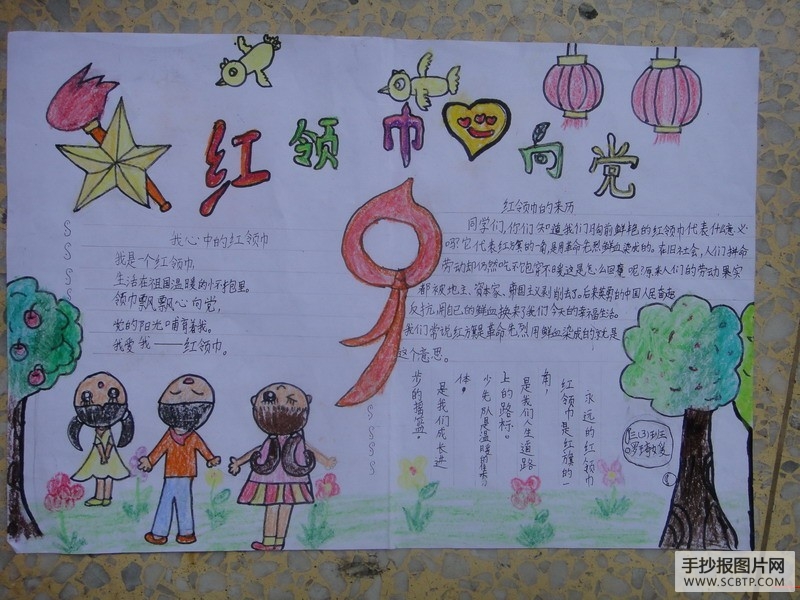 红领巾心向党
我心中的红领巾
我是一个红领巾,
生活在祖国温暖的怀抱里。
领巾飘飘心向党,
党的阳光哺育着我。
我爱我——红领巾。
红领巾的来历
同学们,你们知道我们胸前鲜艳的红领巾代表什么意义
吗?它代表红旗的一角,是用革命先烈鲜血染成的。在旧社会,人们拼命
劳动却仍然吃不饱穿不暖这是怎么回事呢?原来人们的劳动果实
都被地主、资本家、帝国主义剥削去了。后来英勇的中国人民奋起
反抗,用自己的鲜血换来了我们今天的幸福生活。
我们常说红旗是革命先烈用鲜血染成的就是
这个意思。
永远的红领巾
红领巾是红旗的一
角,
是我们人生道路
上的路标。
少先队是温暖的集
体。
是我们成长进
步的摇篮。
三(3)班
手抄报图片网
WWW.SCBTP.COM